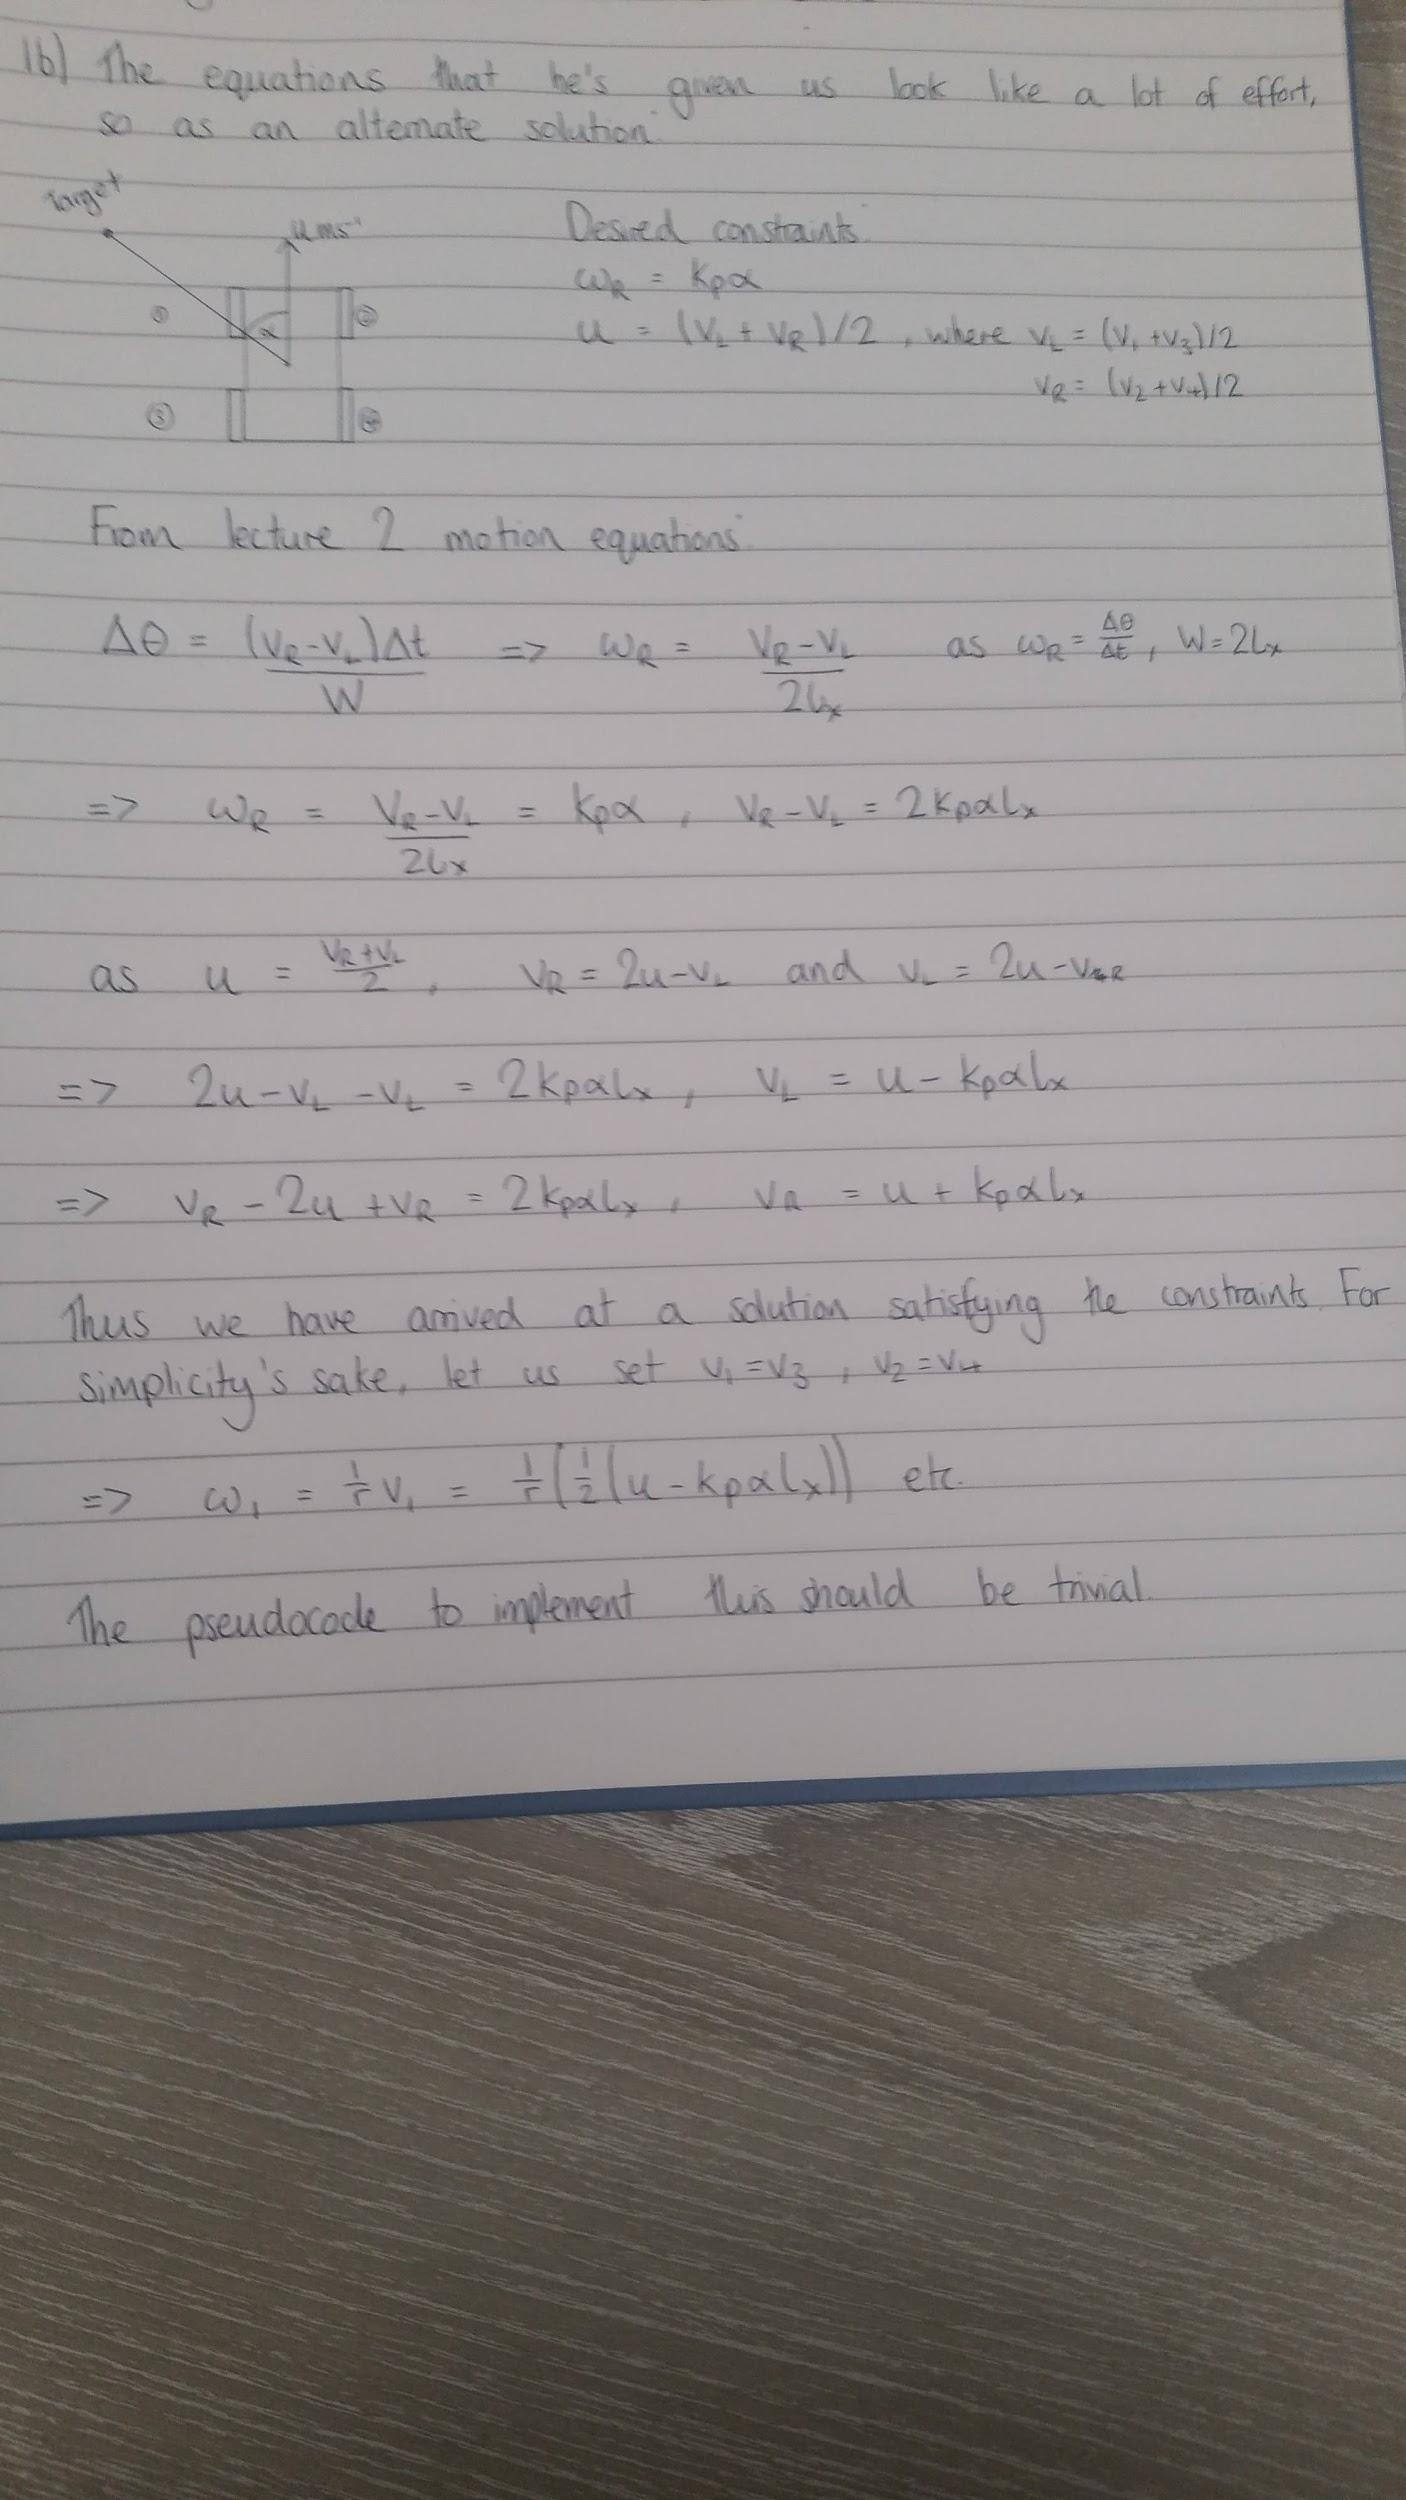 1b) The equations that he's given us look like a lot of effort,
so as an alternate solution:
Target
u ms⁻¹
α
① ②
③ ④
Desired constaints:
ω_R = k_pα
u = (V_L + V_R)/2 , where V_L = (V_1 + V_3)/2
V_R = (V_2 + V_4)/2
From lecture 2 motion equations:
Δθ = (V_R - V_L)Δt / W => ω_R = (V_R - V_L) / 2l_x as ω_R = Δθ/Δt , W = 2l_x
=> ω_R = (V_R - V_L) / 2l_x = k_pα , V_R - V_L = 2k_pαl_x
as u = (V_R + V_L)/2 , V_R = 2u - V_L and V_L = 2u - V_R
=> 2u - V_L - V_L = 2k_pαl_x , V_L = u - k_pαl_x
=> V_R - 2u + V_R = 2k_pαl_x , V_R = u + k_pαl_x
Thus we have arrived at a solution satisfying the constraints. For
simplicity's sake, let us set V_1 = V_3 , V_2 = V_4
=> ω_1 = 1/r V_1 = 1/r (1/2 (u - k_pαl_x)) etc.
The pseudocode to implement this should be trivial.